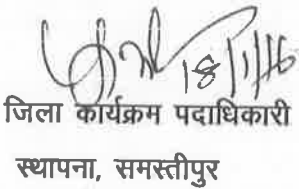 18/1/16
जिला कार्यक्रम पदाधिकारी
स्थापना, समस्तीपुर